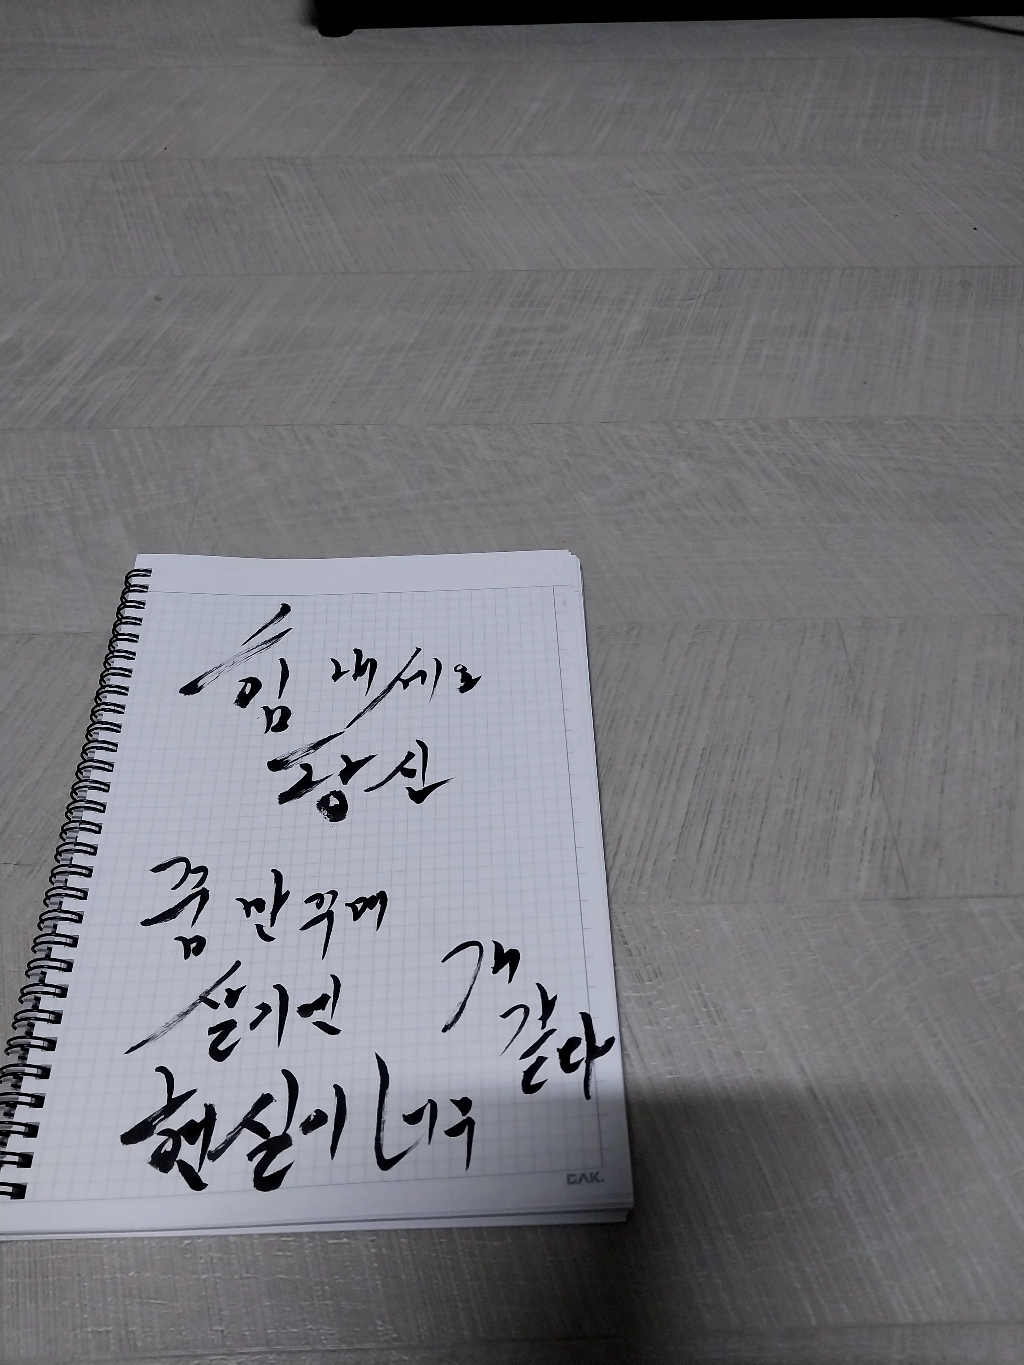 힘 내세요
당신
꿈만 꾸며
살기엔
현실이 너무
개
같다
GAK.